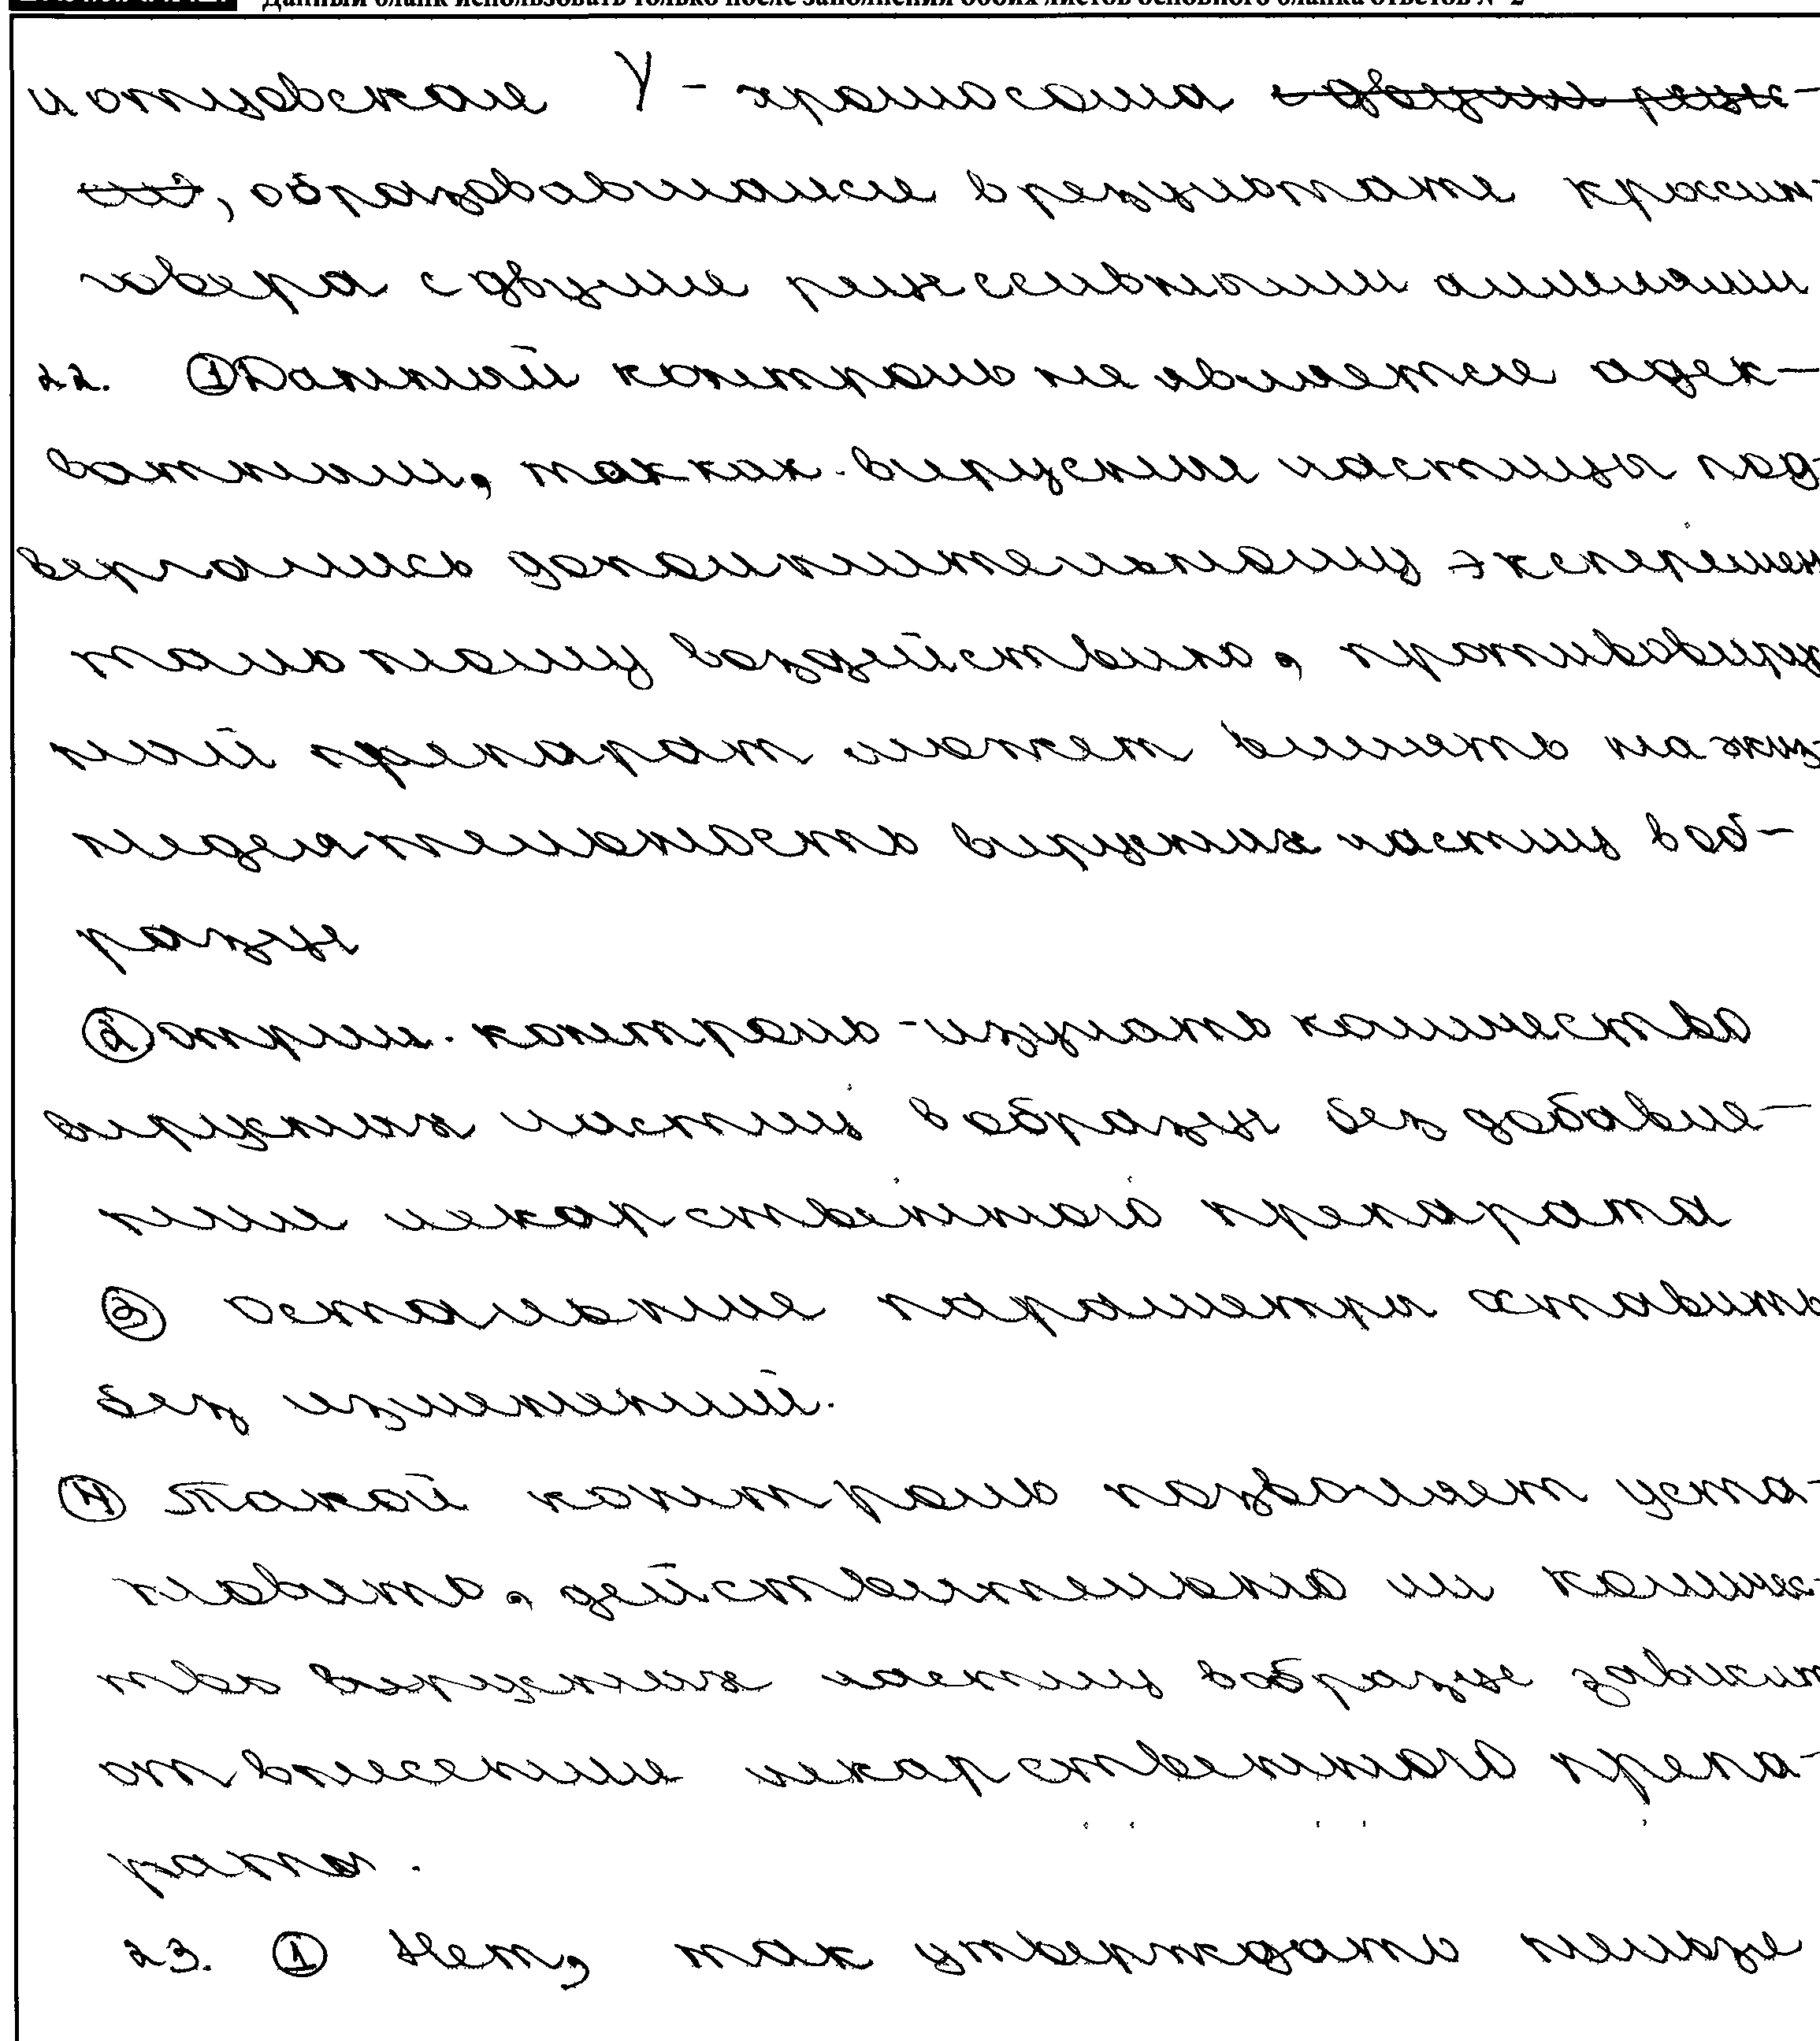 Данный бланк использовать только после заполнения обоих листов основного бланка ответов № 2
и отцовская Y - хромосома с двумя рецес-
сив, образовавшаяся в результате кроссин-
говера с двумя рецессивными аллелями
22. ① Данный контроль не является адек-
ватным, так как вирусные частицы под-
вергались дополнительному эксперимен
тальному воздействию, противовирус
ный препарат может влиять на жиз-
недеятельность вирусных частиц в об-
разце
② отриц. контроль - изучать количество
вирусных частиц в образце без добавле-
ния лекарственного препарата
③ Остальные параметры оставить
без изменений.
④ Такой контроль позволяет уста-
новить, действительно ли количес-
тво вирусных частиц в образце зависит
от внесения лекарственного препа-
рата.
23. ① Нет, так утверждать нельзя